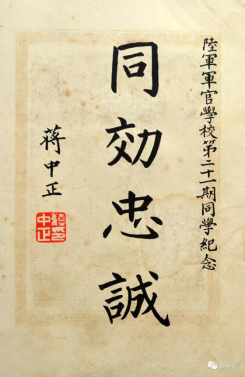 陸軍軍官學校第二十一期同學紀念
同効忠誠
蔣中正
蔣中正